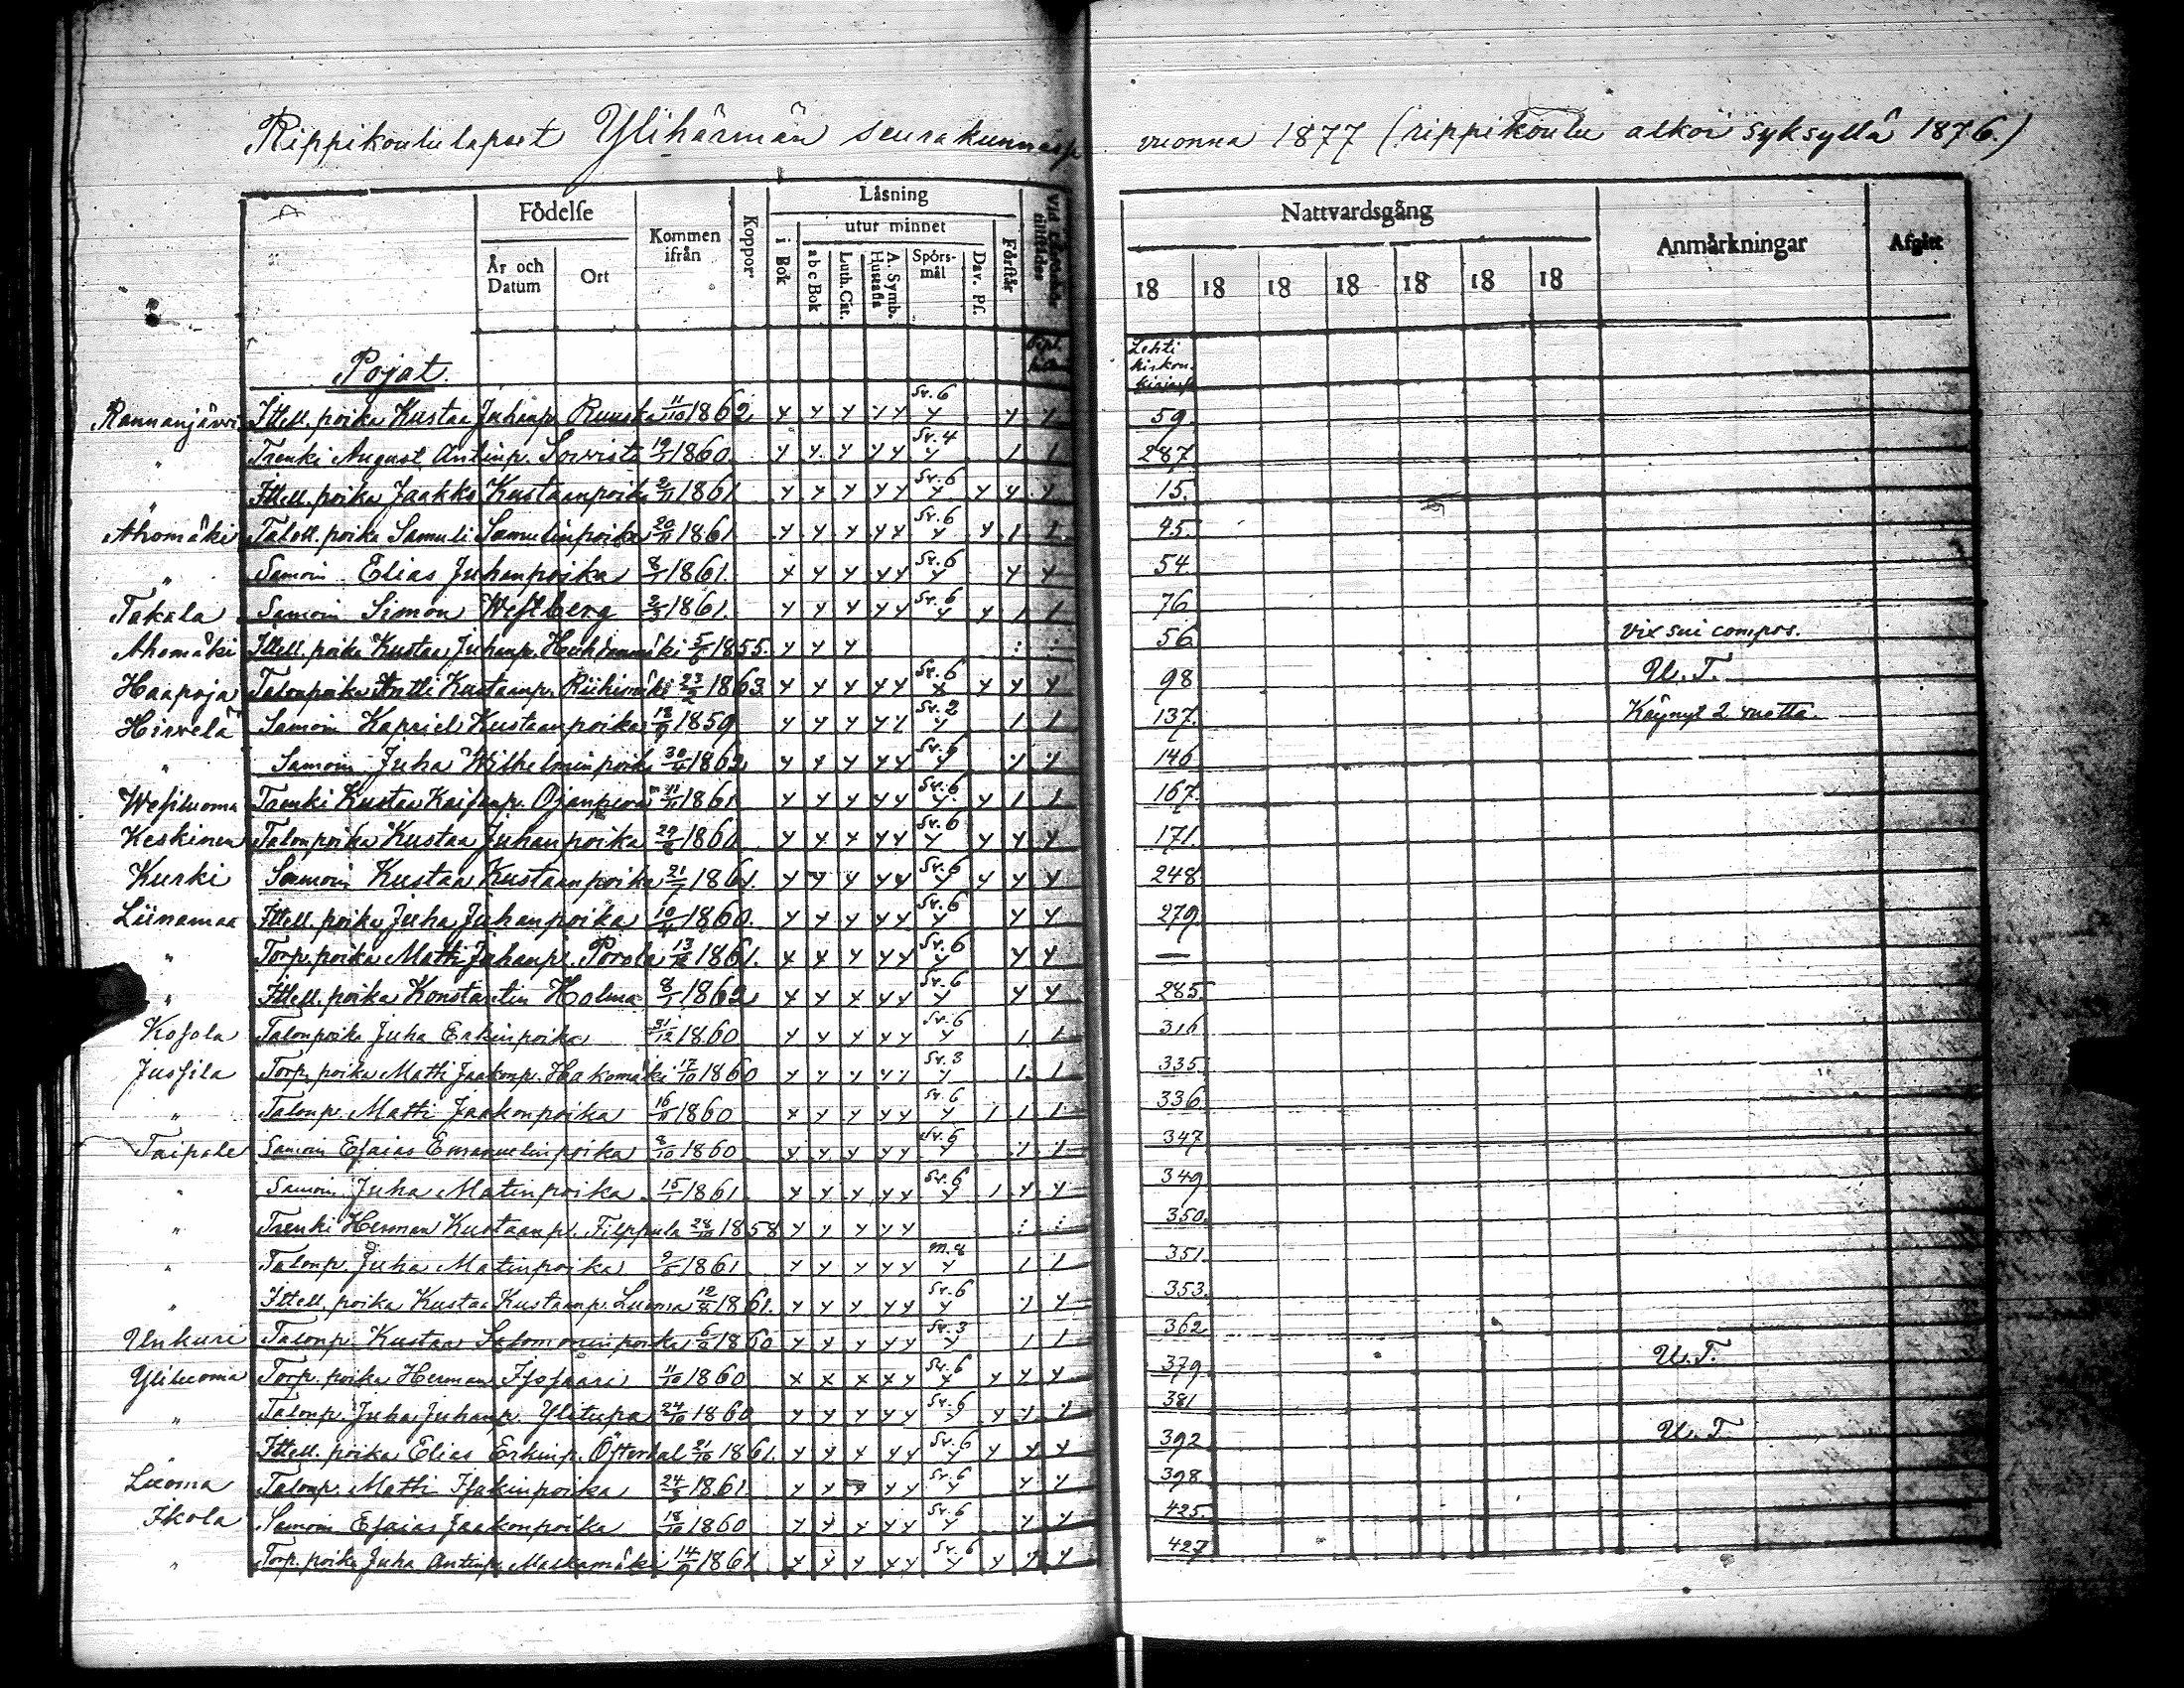 Rippikoululapset Ylihärmän seurakunnassa vuonna 1877 (rippikoulu alkoi syksyllä 1876.)
Födelse Kommen ifrån Koppor Läsning Nattvardsgång Anmärkningar Afgått
utur minnet
År och Datum Ort i Bok abc Bok Luth. Cat. A. Symb. Hustafla Spörsmål Dav. Ps. Förstår
18 18 18 18 18 18 18
Pojat. Lehti
Rannanjärvi Ittell. poika Kustaa Juhanp. Ruuska 11/10 1862 y y y y y Sv. 6 y y y 59.
" Trenki August Antinp. Sorvisto 19/ 1860 y y y y y Sv. 4 y 1 1 287.
" Ittell. poika Jaakko Kustaanpoika 2/11 1861 y y y y y Sv. 6 y y y y 15.
Ahomäki Talell. poika Samuli Samulinpoika 20/11 1861 y y y y y Sv. 6 y y 1 1 45.
" Samoin Elias Juhanpoika 8/1 1861. y y y y y Sv. 6 y y y 54
Takala Samoin Simon Westberg 2/3 1861. y y y y y Sv. 6 y y 1 1 76
Ahomäki Ittell. poika Kustaa Juhanp. Huhtamäki 5/6 1855. y y y : : 56 vix sui compos.
Haapoja Talonpoika Antti Kustaanp. Riihimäki 23/2 1863. y y y y y Sv. 6 y y y y 98 U. T.
Hirvelä Samoin Kapriel Kustaanpoika 18/9 1859 y y y y 1 Sv. 2 y 1 1 137. Käynyt 2 vuotta.
" Samoin Juha Wilhelminpoika 30/4 1862 y y y y y Sv. 6 y y y 146
Wesiluoma Trenki Kustaa Kaisanp. Ojanperä 11/11 1861 y y y y y Sv. 6 y y 1 1 167.
Keskinen Talonpoika Kustaa Juhanpoika 29/6 1860 y y y y y Sv. 6 y y y y 171.
Kurki Samoin Kustaa Kustaanpoika 21/7 1861. y y y y y Sv. 6 y y y y 248
Liinamaa Ittell. poika Juha Juhanpoika 10/4 1860. y y y y y Sv. 6 y y y 279.
" Torp. poika Matti Juhanp. Porola 13/10 1861. y y y y y Sv. 6 y y y —
" Ittell. poika Konstantin Holma 8/1 1862 y y y y y Sv. 6 y y y 285.
Kosola Talonpoika Juha Erkinpoika 31/12 1860 y y y y y Sv. 6 y 1 1 316
Jussila Torp. poika Matti Jaakonp. Hakomäki 17/10 1860 y y y y y Sv. 3 y 1 1 335.
" Talonp. Matti Jaakonpoika 16/11 1860 y y y y y Sv. 6 y 1 1 1 336.
Taipale Samoin Esaias Emanuelinpoika 8/10 1860 y y y y y Sv. 6 y y y 347
" Samoin Juha Matinpoika 15/7 1861 y y y y y Sv. 6 y 1 y y 349.
" Trenki Herman Kustaanp. Filppula 28/10 1858 y y y y y : : 350.
" Talonp. Juha Matinpoika 9/6 1861 y y y y y y 1 1 351.
" Ittell. poika Kustaa Kustaanp. Luoma 12/11 1861. y y y y y Sv. 6 y y y 353.
Unkuri Talonp. Kustaa Salomoninpoika 6/2 1860 y y y y y Sv. 3 y 1 1 362
Yliluoma Torp. poika Herman Isosaari 11/10 1860 y y y y y Sv. 6 y y y y 379. U. T.
" Talonp. Juha Juhanp. Ylitupa 24/10 1860 y y y y y Sv. 6 y y y y 381
" Ittell. poika Elias Erkinp. Österdal 21/10 1861. y y y y y Sv. 6 y y y y 392 U. T.
Luoma Talonp. Matti Isakinpoika 24/3 1861. y y y y y Sv. 6 y y y 398
Ikola Samoin Esaias Jaakonpoika 18/10 1860 y y y y y Sv. 6 y y y 425.
" Torp. poika Juha Antinp. Malkamäki 14/9 1861. y y y y y Sv. 6 y y y y 427